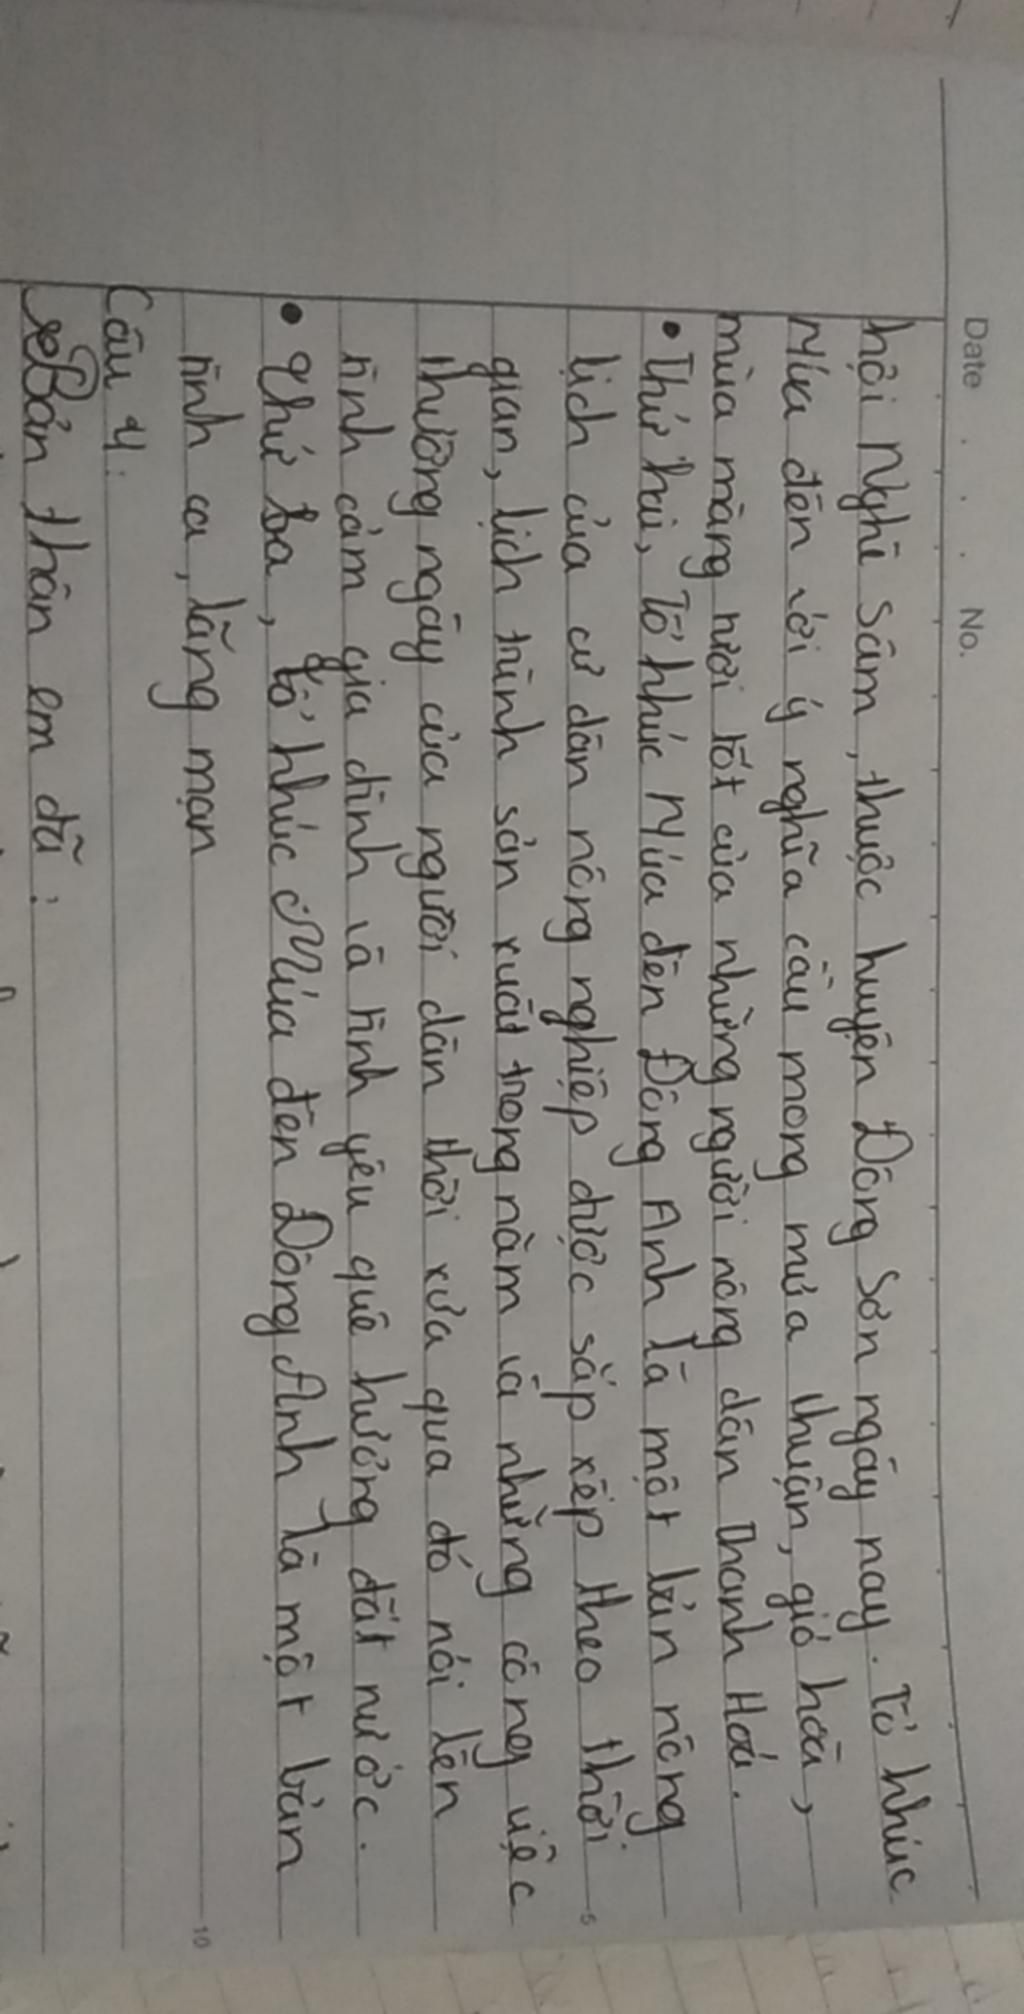 Date . . . No.
hội Nghè Sâm, thuộc huyện Đông Sơn ngày nay. Tổ khúc
Múa đèn với ý nghĩa cầu mong mưa thuận, gió hoà,
mùa màng tươi tốt của những người nông dân Thanh Hoá.
• Thứ hai, Tổ khúc Múa đèn Đông Anh là một bản nông
lịch của cư dân nông nghiệp được sắp xếp theo thời
5
gian, lịch trình sản xuất trong năm và những công việc
thường ngày của người dân thời xưa qua đó nói lên
tình cảm gia đình và tình yêu quê hương đất nước.
• Thứ ba, tổ khúc Múa đèn Đông Anh là một bản
tình ca, lãng mạn
10
Câu 4:
Bản thân em đã: